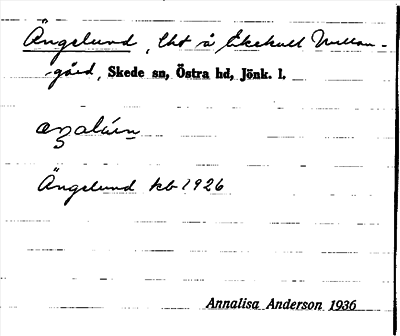 Ängelund, lht å Ekekull Mellan-
gård, Skede sn, Östra hd, Jönk. l.
Ängelund kb 1926
Annalisa Anderson 1936